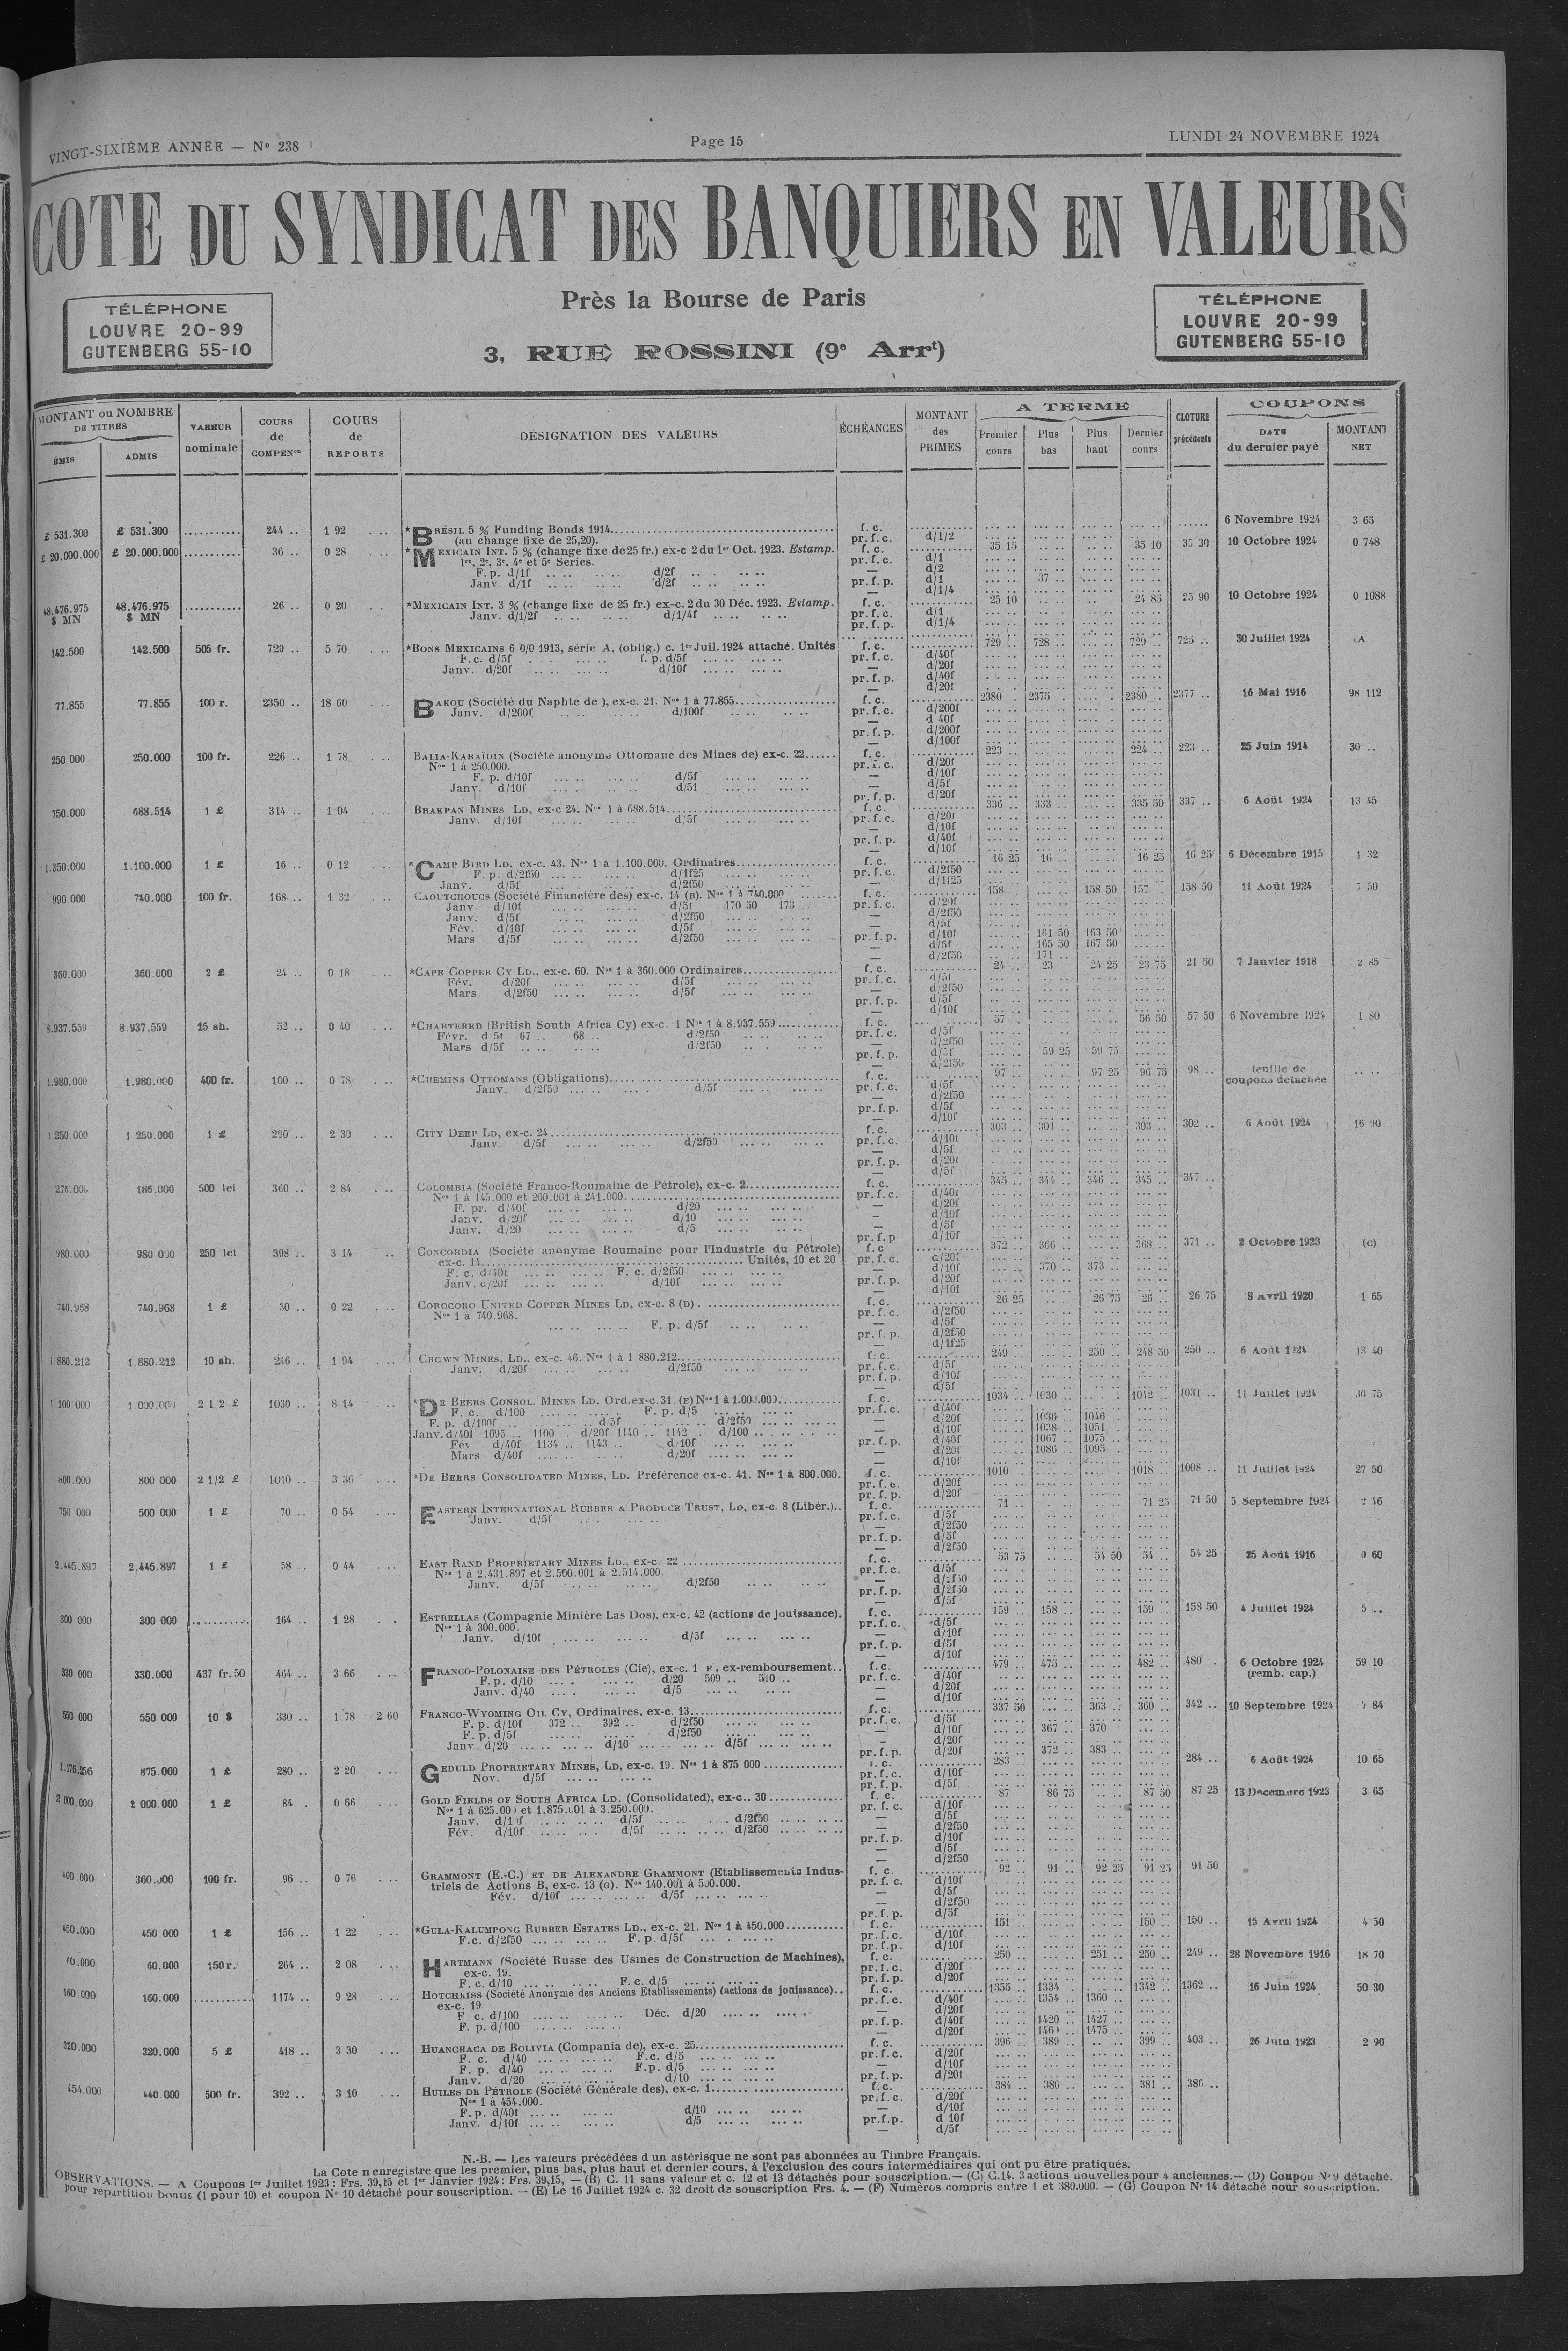 VINGT-SIXIÈME ANNÉE — N° 238
Page 15
LUNDI 24 NOVEMBRE 1924
COTE DU SYNDICAT DES BANQUIERS EN VALEURS
TÉLÉPHONE
LOUVRE 20-99
GUTENBERG 55-10
Près la Bourse de Paris
3, RUE ROSSINI (9e Arrt)
TÉLÉPHONE
LOUVRE 20-99
GUTENBERG 55-10
MONTANT ou NOMBRE DE TITRES
ÉMIS ADMIS
VALEUR nominale
COURS de COMPENon
COURS de REPORTS
DÉSIGNATION DES VALEURS
ÉCHÉANCES
MONTANT des PRIMES
A TERME
Premier cours Plus bas Plus haut Dernier cours
CLOTURE précédente
COUPONS
DATE du dernier payé MONTANT NET
£ 531.300 £ 531.300 ........... 244 .. 1 92 *BRÉSIL 5 % Funding Bonds 1914 f. c. 6 Novembre 1924 3 65
(au change fixe de 25,20). pr. f. c. d/1/2
£ 20.000.000 £ 20.000.000 ........... 36 .. 0 28 *MEXICAIN INT. 5 % (change fixe de 25 fr.) ex-c 2 du 1er Oct. 1923. Estamp. f. c. 35 15 35 10 35 30 10 Octobre 1924 0 748
1re, 2e, 3e, 4e et 5e Séries. pr. f. c. d/1
F. p. d/1f d/2f — d/2
Janv. d/1f d/2f pr. f. p. d/1 37 ..
— d/1/4
48.476.975 $ MN 48.476.975 $ MN ........... 26 .. 0 20 *MEXICAIN INT. 3 % (change fixe de 25 fr.) ex-c. 2 du 30 Déc. 1923. Estamp. f. c. 25 10 24 85 25 90 10 Octobre 1924 0 1088
Janv. d/1/2f d/1/4f pr. f. c. d/1
pr. f. p. d/1/4
142.500 142.500 505 fr. 720 .. 5 70 *BONS MEXICAINS 6 0/0 1913, série A, (oblig.) c. 1er Juil. 1924 attaché. Unités f. c. 729 .. 728 .. 729 .. 725 .. 30 Juillet 1924 (A
F.c. d/5f f. p. d/5f pr. f. c. d/40f
Janv. d/20f d/10f — d/20f
pr. f. p. d/40f
— d/20f
77.855 77.855 100 r. 2350 .. 18 60 BAKOU (Société du Naphte de ), ex-c. 21. Nos 1 à 77.855 f. c. 2380 .. 2375 .. 2380 .. 2377 .. 16 Mai 1916 98 112
Janv. d/200f d/100f pr. f. c. d/200f
— d 40f
pr. f. p. d/200f
— d/100f
250 000 250.000 100 fr. 226 .. 1 78 BALIA-KARAÏDIN (Société anonyme Ottomane des Mines de) ex-c. 22 f. c. 223 .. 224 .. 223 .. 25 Juin 1914 30 ..
Nos 1 à 250.000. pr. f. c. d/20f
F. p. d/10f d/5f — d/10f
Janv. d/10f d/51 — d/5f
pr. f. p. d/20f
750.000 688.514 1 £ 314 .. 1 04 BRAKPAN MINES LD, ex-c 24. Nos 1 à 688.514 f. c. 336 .. 333 .. 335 50 337 .. 6 Août 1924 13 45
Janv. d/10f d/5f pr. f. c. d/20f
— d/10f
pr. f. p. d/40f
— d/10f
1.350.000 1.100.000 1 £ 16 .. 0 12 *CAMP BIRD LD. ex-c. 43. Nos 1 à 1.100.000. Ordinaires f. c. 16 25 16 .. 16 25 16 25 6 Décembre 1915 1 32
F. p. d/2f50 d/1f25 pr. f. c. d/2f50
Janv. d/5f d/2f50 — d/1f25
990 000 740.000 100 fr. 168 .. 1 32 CAOUTCHOUCS (Société Financière des) ex-c. 14 (B). Nos 1 à 740.000 f. c. 158 158 50 157 .. 158 50 11 Août 1924 7 50
Janv. d/10f d/5f 170 50 173 pr. f. c. d/20f
Janv. d/5f d/2f50 — d/2f50
Fév. d/10f d/5f — d/5f
Mars d/5f d/2f50 pr. f. p. d/10f 161 50 163 50
— d/5f 165 50 167 50
— d/2f50 171 ..
360.000 360.000 2 £ 24 .. 0 18 *CAPE COPPER CY LD., ex-c. 60. Nos 1 à 360.000 Ordinaires f. c. 24 .. 23 24 25 23 75 21 50 7 Janvier 1918 2 85
Fév. d/20f d/5f pr. f. c. d/5f
Mars d/2f50 d/5f — d/2f50
pr. f. p. d/5f
— d/10f
8.937.559 8.937.559 15 sh. 52 .. 0 40 *CHARTERED (British South Africa Cy) ex-c. 1 Nos 1 à 8.937.559 f. c. 57 56 50 57 50 6 Novembre 1924 1 80
Févr. d 5f 67 .. 68 .. d/2f50 pr. f. c. d/5f
Mars d/5f d/2f50 — d/2f50
pr. f. p. d/5f 59 25 59 75
— d/2f50
1.980.000 1.980.000 400 fr. 100 .. 0 78 *CHEMINS OTTOMANS (Obligations) f. c. 97 97 25 96 75 98 .. feuille de coupons détachée
Janv. d/2f50 d/5f pr. f. c. d/5f
— d/2f50
pr. f. p. d/5f
— d/10f
1.250.000 1 250.000 1 £ 290 .. 2 30 CITY DEEP LD, ex-c. 24 f. c. 303 .. 301 .. 303 .. 302 .. 6 Août 1924 16 90
Janv. d/5f d/2f50 pr. f. c. d/10f
— d/5f
pr. f. p. d/20f
— d/5f
276.000 186.000 500 lei 360 .. 2 84 COLOMBIA (Société Franco-Roumaine de Pétrole), ex-c. 2 f. c. 345 .. 344 .. 346 .. 345 .. 347 ..
Nos 1 à 145.000 et 200.001 à 241.000 pr. f. c. d/40f
F. pr. d/40f d/20 — d/20f
Janv. d/20f d/10 — d/10f
Janv. d/20 d/5 — d/5f
pr. f. p d/10f
980.000 980 000 250 lei 398 .. 3 14 CONCORDIA (Société anonyme Roumaine pour l'Industrie du Pétrole) f. c 372 .. 366 .. 368 .. 371 .. 2 Octobre 1923 (C)
ex-c. 14 Unités, 10 et 20 pr. f. c. d/20f
F. c. d/40f F. c. d/2f50 — d/10f 370 .. 373 ..
Janv. d/20f d/10f pr. f. p. d/20f
— d/10f
740.968 740.968 1 £ 30 .. 0 22 COROCORO UNITED COPPER MINES LD, ex-c. 8 (D) f. c. 26 25 26 75 26 .. 26 75 8 Avril 1920 1 65
Nos 1 à 740.968. pr. f. c. d/2f50
F. p. d/5f — d/5f
pr. f. p. d/2f50
— d/1f25
1 880.212 1 880.212 10 sh. 246 .. 1 94 CROWN MINES, LD., ex-c. 46. Nos 1 à 1 880.212 f. c. 249 .. 250 .. 248 50 250 .. 6 Août 1924 13 40
Janv. d/20f d/2f50 pr. f. c. d/5f
pr. f. p. d/10f
— d/5f
1 100 000 1.000.000 2 1 2 £ 1030 .. 8 14 *DE BEERS CONSOL. MINES LD. Ord. ex-c. 31 (E) Nos 1 à 1.000.000 f. c. 1034 .. 1030 .. 1042 .. 1031 .. 11 Juillet 1924 30 75
F. c. d/100 F. p. d/5 pr. f. c. d/40f
F. p. d/100f d/5f d/2f50 — d/20f 1036 .. 1046 ..
Janv. d/40f 1095 .. 1100 d/20f 1140 .. 1142 d/100 — d/10f 1038 .. 1051 ..
Fév d/40f 1134 .. 1143 .. d/10f pr. f. p. d/40f 1067 .. 1075 ..
Mars d/40f d/20f — d/20f 1086 .. 1095 ..
— d/10f
800.000 800 000 2 1/2 £ 1010 .. 3 36 *DE BEERS CONSOLIDATED MINES, LD. Préférence ex-c. 41. Nos 1 à 800.000. f. c. 1010 .. 1018 .. 1008 .. 11 Juillet 1924 27 50
pr. f. c. d/20f
pr. f. p. d/20f
750 000 500 000 1 £ 70 .. 0 54 EASTERN INTERNATIONAL RUBBER & PRODUCE TRUST, LD, ex-c. 8 (Libér.) f. c. 71 .. 71 25 71 50 5 Septembre 1924 2 46
Janv. d/5f pr. f. c. d/5f
— d/2f50
pr. f. p. d/5f
— d/2f50
2.445.897 2.445.897 1 £ 58 .. 0 44 EAST RAND PROPRIETARY MINES LD., ex-c. 22 f. c. 53 75 54 50 54 .. 54 25 25 Août 1916 0 60
Nos 1 à 2.431.897 et 2.500.001 à 2.514.000. pr. f. c. d/5f
Janv. d/5f d/2f50 — d/2f50
pr. f. p. d/2f50
— d/5f
300 000 300 000 ........... 164 .. 1 28 ESTRELLAS (Compagnie Minière Las Dos), ex-c. 42 (actions de jouissance). f. c. 159 .. 158 .. 159 .. 158 50 4 Juillet 1924 5 ..
Nos 1 à 300.000. pr. f. c. d/5f
Janv. d/10f d/5f — d/10f
pr. f. p. d/5f
— d/10f
330 000 330.000 437 fr. 50 464 .. 3 66 FRANCO-POLONAISE DES PÉTROLES (Cie), ex-c. 1 F. ex-remboursement f. c. 479 .. 475 .. 482 .. 480 6 Octobre 1924 (remb. cap.) 59 10
F. p. d/10 d/20 509 .. 510 .. pr. f. c. d/40f
Janv. d/40 d/5 — d/20f
— d/10f
550 000 550 000 10 $ 330 .. 1 78 2 60 FRANCO-WYOMING OIL CY, Ordinaires, ex-c. 13 f. c. 337 50 363 360 342 .. 10 Septembre 1924 7 84
F. p. d/10f 372 .. 392 .. d/2f50 pr. f. c. d/5f
F. p. d/5f d/2f50 — d/10f 367 .. 370
Janv. d/20 d/10 d/5f — d/20f
pr. f. p. d/20f 372 .. 383 ..
1.176.256 875.000 1 £ 280 .. 2 20 GEDULD PROPRIETARY MINES, LD, ex-c. 19. Nos 1 à 875 000 f. c. 283 284 .. 6 Août 1924 10 65
Nov. d/5f pr. f. c. d/10f
pr. f. p. d/5f
2 000.000 2 000.000 1 £ 84 . 0 66 GOLD FIELDS OF SOUTH AFRICA LD. (Consolidated), ex-c.. 30 f. c. 87 86 75 87 50 87 25 13 Décembre 1923 3 65
Nos 1 à 625.000 et 1.875.001 à 3.250.000. pr. f. c. d/10f
Janv. d/10f d/5f d/2f50 — d/5f
Fév. d/10f d/5f d/2f50 — d/2f50
pr. f. p. d/10f
— d/5f
— d/2f50
400.000 360.000 100 fr. 96 .. 0 76 GRAMMONT (E.-C.) ET DE ALEXANDRE GRAMMONT (Etablissements Indus- f. c. 92 .. 91 .. 92 25 91 25 91 50
triels de Actions B, ex-c. 13 (G). Nos 140.001 à 500.000. pr. f. c. d/10f
Fév. d/10f d/5f — d/5f
— d/2f50
pr. f. p. d/5f
450.000 450 000 1 £ 156 .. 1 22 *GULA-KALUMPONG RUBBER ESTATES LD., ex-c. 21. Nos 1 à 450.000 f. c. 151 150 .. 150 .. 15 Avril 1924 4 50
F.c. d/2f50 F. p. d/5f pr. f. c. d/10f
pr. f. p. d/10f
60.000 150 r. 264 .. 2 08 HARTMANN (Société Russe des Usines de Construction de Machines), f. c. 250 .. 251 .. 250 .. 249 .. 28 Novembre 1916 18 70
ex-c. 19. pr. f. c. d/20f
F. c. d/10 F. c. d/5 pr. f. p. d/20f
160 000 160.000 ........... 1174 .. 9 28 HOTCHKISS (Société Anonyme des Anciens Etablissements) (actions de jouissance) f. c. 1355 .. 1334 .. 1342 .. 1362 .. 16 Juin 1924 50 30
ex-c. 19 pr. f. c. d/40f 1354 .. 1360 ..
F c. d/100 Déc. d/20 — d/20f
F. p. d/100 pr. f. p. d/40f 1420 .. 1427 ..
— d/20f 1475 ..
320.000 320.000 5 £ 418 .. 3 30 HUANCHACA DE BOLIVIA (Compania de), ex-c. 25 f. c. 396 389 .. 399 .. 403 .. 26 Juin 1923 2 90
F. c. d/40 F.c. d/5 pr. f. c. d/20f
F. p. d/40 F.p. d/5 — d/10f
Janv. d/20 d/10 pr. f. p. d/20f
454.000 440 000 500 fr. 392 .. 3 10 HUILES DE PÉTROLE (Société Générale des), ex-c. 1 f. c. 384 .. 380 .. 381 .. 386 ..
Nos 1 à 454.000. pr. f. c. d/20f
F. p. d/40f d/10 — d/10f
Janv. d/10f d/5 pr.f.p. d 10f
— d/5f
N.-B. — Les valeurs précédées d un astérisque ne sont pas abonnées au Timbre Français.
La Cote n enregistre que les premier, plus bas, plus haut et dernier cours, à l'exclusion des cours intermédiaires qui ont pu être pratiqués.
OBSERVATIONS. — A Coupons 1er Juillet 1923 : Frs. 39,15 et 1er Janvier 1924 : Frs. 39,15, — (B) C. 11 sans valeur et c. 12 et 13 détachés pour souscription. — (C) C.14. 3 actions nouvelles pour 4 anciennes. — (D) Coupon N° 9 détaché.
pour répartition bonus (1 pour 10) et coupon N° 10 détaché pour souscription. — (E) Le 16 Juillet 1924 c. 32 droit de souscription Frs. 4. — (F) Numéros compris entre 1 et 380.000. — (G) Coupon N° 14 détaché pour souscription.